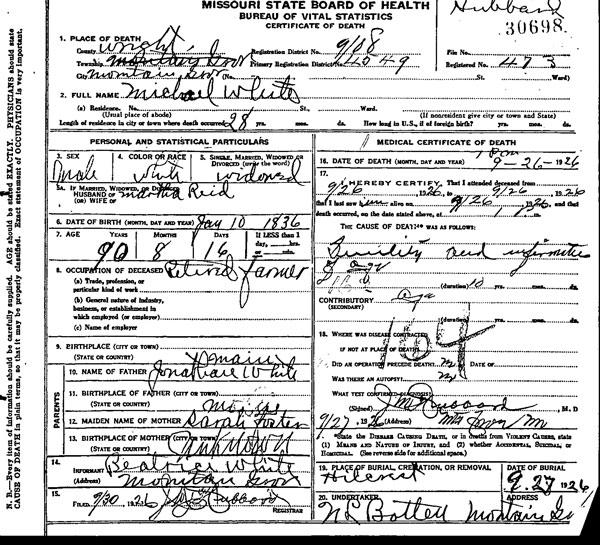 MISSOURI STATE BOARD OF HEALTH
BUREAU OF VITAL STATISTICS
CERTIFICATE OF DEATH
Hubbard
30698.
1. PLACE OF DEATH
County Wright Registration District No. 908 File No.
Township Primary Registration District No. 4549 Registered No. 473
City Mountain Grove (No. St. Ward)
2. FULL NAME Michael White
(a) Residence. No. St., Ward.
(Usual place of abode) (If nonresident give city or town and State)
Length of residence in city or town where death occurred 28 yrs. mos. ds. How long in U.S., if of foreign birth? yrs. mos. ds.
PERSONAL AND STATISTICAL PARTICULARS
3. SEX Male
4. COLOR OR RACE White
5. SINGLE, MARRIED, WIDOWED OR DIVORCED (write the word) Widowed
5A. IF MARRIED, WIDOWED, OR DIVORCED
HUSBAND OF
(OR) WIFE OF Martha Reid
6. DATE OF BIRTH (MONTH, DAY AND YEAR) Jany 10 1836
7. AGE YEARS MONTHS DAYS If LESS than 1
day, hrs.
or min.
90 8 16
8. OCCUPATION OF DECEASED Retired farmer
(a) Trade, profession, or
particular kind of work
(b) General nature of industry,
business, or establishment in
which employed (or employer)
(c) Name of employer
9. BIRTHPLACE (CITY OR TOWN)
(STATE OR COUNTRY) Maine
PARENTS
10. NAME OF FATHER Jonathan White
11. BIRTHPLACE OF FATHER (CITY OR TOWN)
(STATE OR COUNTRY)
12. MAIDEN NAME OF MOTHER Sarah Foster
13. BIRTHPLACE OF MOTHER (CITY OR TOWN)
(STATE OR COUNTRY) Unknown
14. INFORMANT Beatrice White
(Address) Mountain Grove
15. FILED 9/30 1926 Hubbard
REGISTRAR
MEDICAL CERTIFICATE OF DEATH
16. DATE OF DEATH (MONTH, DAY AND YEAR) 9-26-1926
17. I HEREBY CERTIFY, That I attended deceased from
9/26 1926, to 9/26 1926
that I last saw him alive on 9/26 1926, and that
death occurred, on the date stated above, at
THE CAUSE OF DEATH* WAS AS FOLLOWS:
Senility and infirmities
of age
(duration) 10 yrs. mos. ds.
CONTRIBUTORY Age
(SECONDARY)
(duration) yrs. mos. ds.
164
18. WHERE WAS DISEASE CONTRACTED
IF NOT AT PLACE OF DEATH?
DID AN OPERATION PRECEDE DEATH? no DATE OF
WAS THERE AN AUTOPSY? no
WHAT TEST CONFIRMED DIAGNOSIS?
(Signed) Hubbard, M. D
9/27, 1926 (Address) Mtn Grove Mo
*State the DISEASE CAUSING DEATH, or in deaths from VIOLENT CAUSES, state
(1) MEANS AND NATURE OF INJURY, and (2) whether ACCIDENTAL, SUICIDAL, or
HOMICIDAL. (See reverse side for additional space.)
19. PLACE OF BURIAL, CREMATION, OR REMOVAL DATE OF BURIAL
Hilcrest 9-27 1926
20. UNDERTAKER ADDRESS
Mountain Gr
N. B.—Every item of information should be carefully supplied. AGE should be stated EXACTLY. PHYSICIANS should state
CAUSE OF DEATH in plain terms, so that it may be properly classified. Exact statement of OCCUPATION is very important.